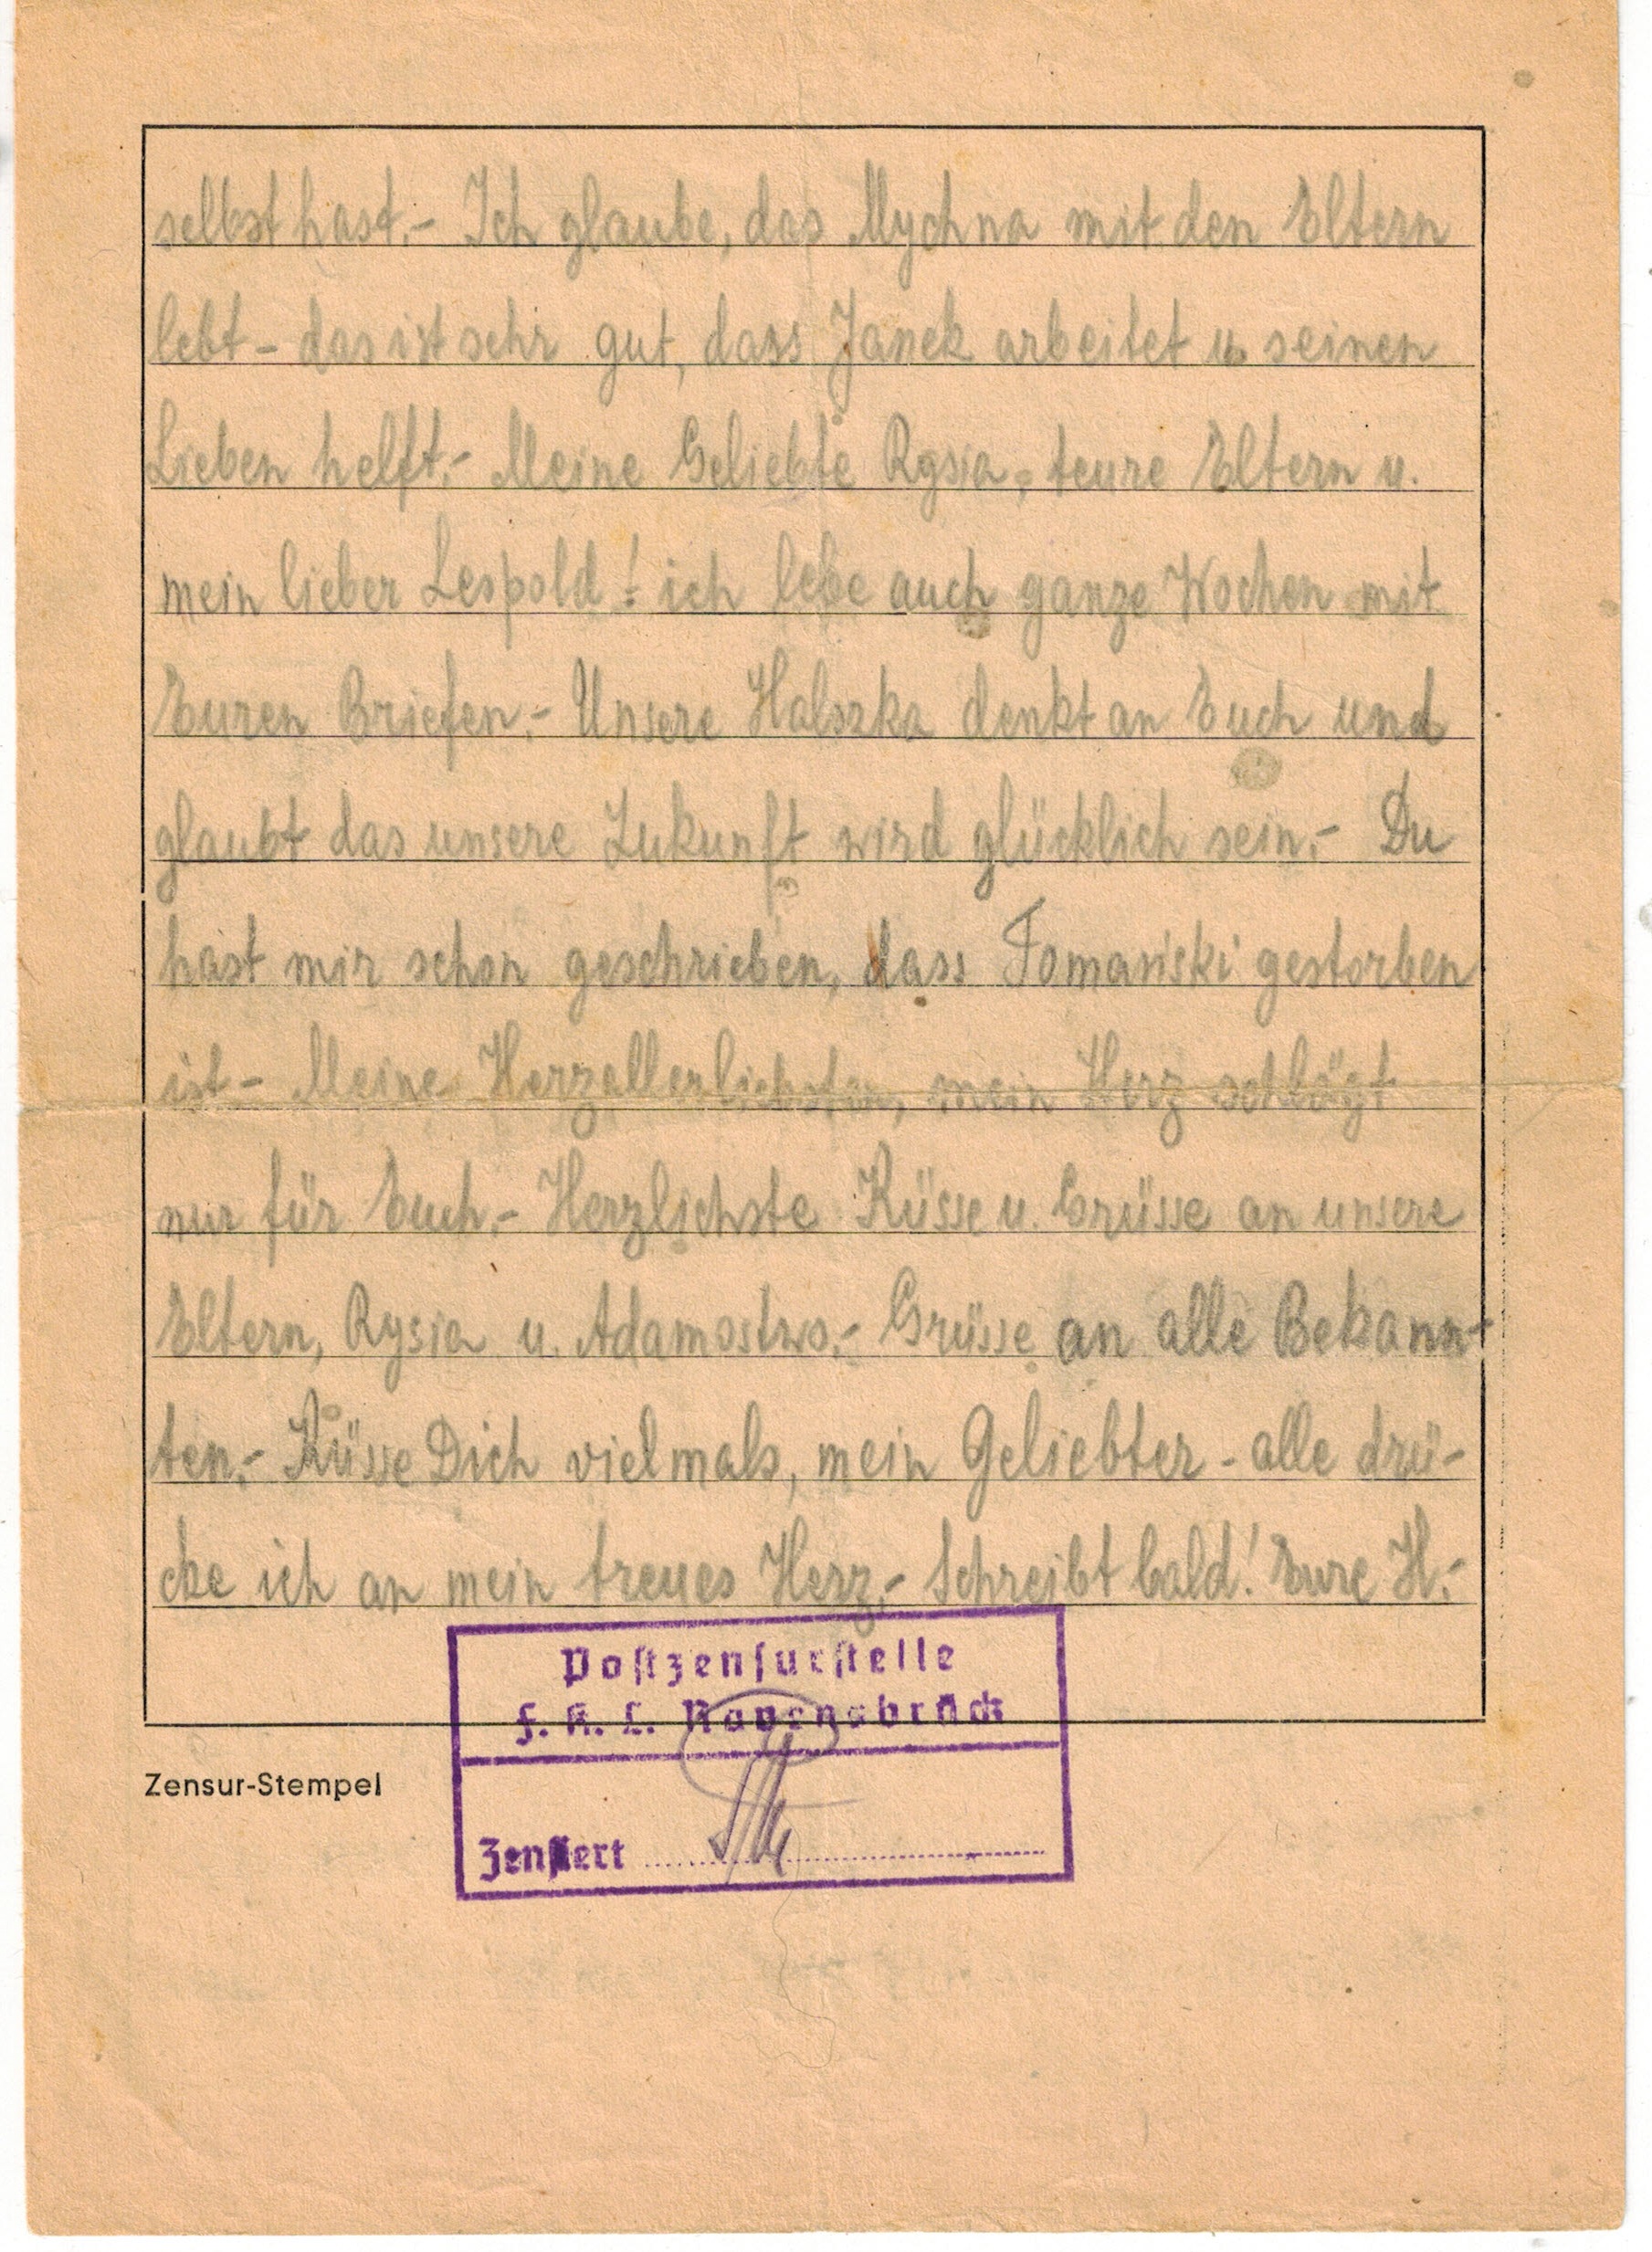 selbst hast.- Ich glaube, das Mychna mit den Eltern
lebt - das ist sehr gut, dass Janek arbeitet u. seinen
Lieben helft.- Meine Geliebte Rysia, teure Eltern u.
mein lieber Leopold! ich lebe auch ganze Wochen mit
Euren Briefen.- Unsere Halszka denkt an Euch und
glaubt das unsere Zukunft wird glücklich sein.- Du
hast mir schon geschrieben, dass Tomański gestorben
ist - Meine Herzallerliebsten, mein Herz schlägt
nur für Euch.- Herzlichste Küsse u. Grüsse an unsere
Eltern, Rysia u. Adamostwo.- Grüsse an alle Bekann-
ten.- Küsse Dich vielmals, mein Geliebter - alle drü-
cke ich an mein treues Herz.- Schreibt bald! Eure H.-
Postzensurstelle
F. K. L. Ravensbrück
Zensur-Stempel
Zensiert